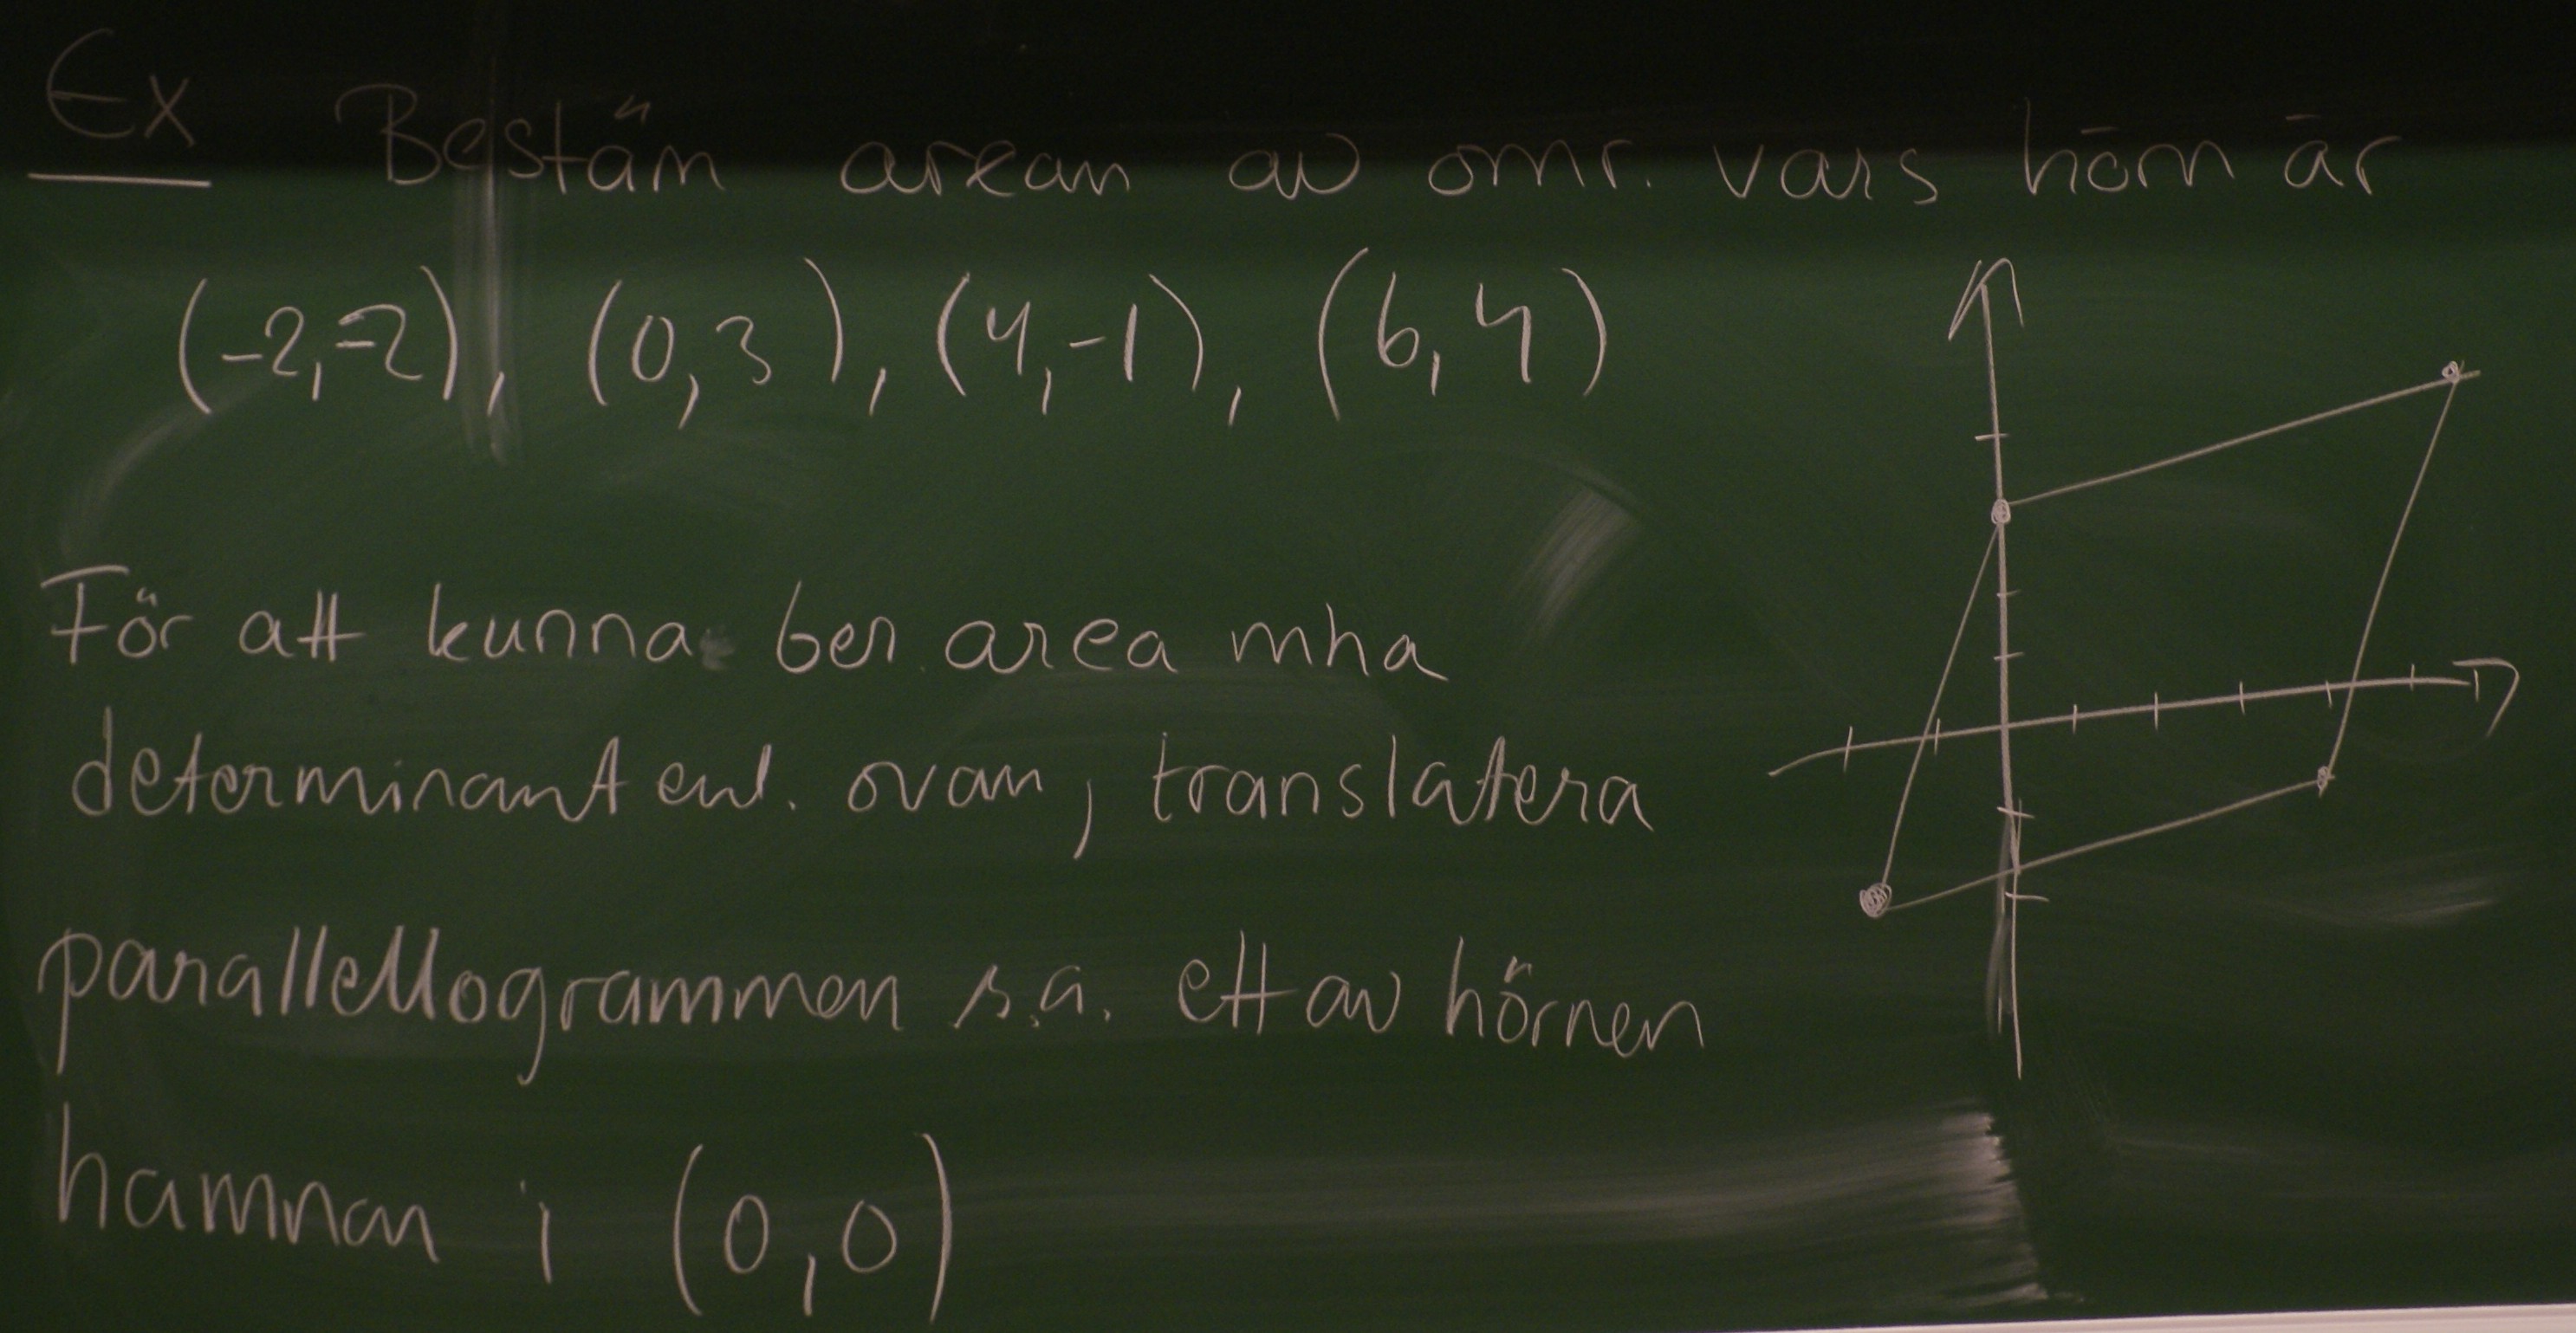 Ex Bestäm arean av omr. vars hörn är
(-2,-2), (0,3), (4,-1), (6,4)
För att kunna ber. area mha
determinant enl. ovan, translatera
parallellogrammen s.a. ett av hörnen
hamnar i (0,0)